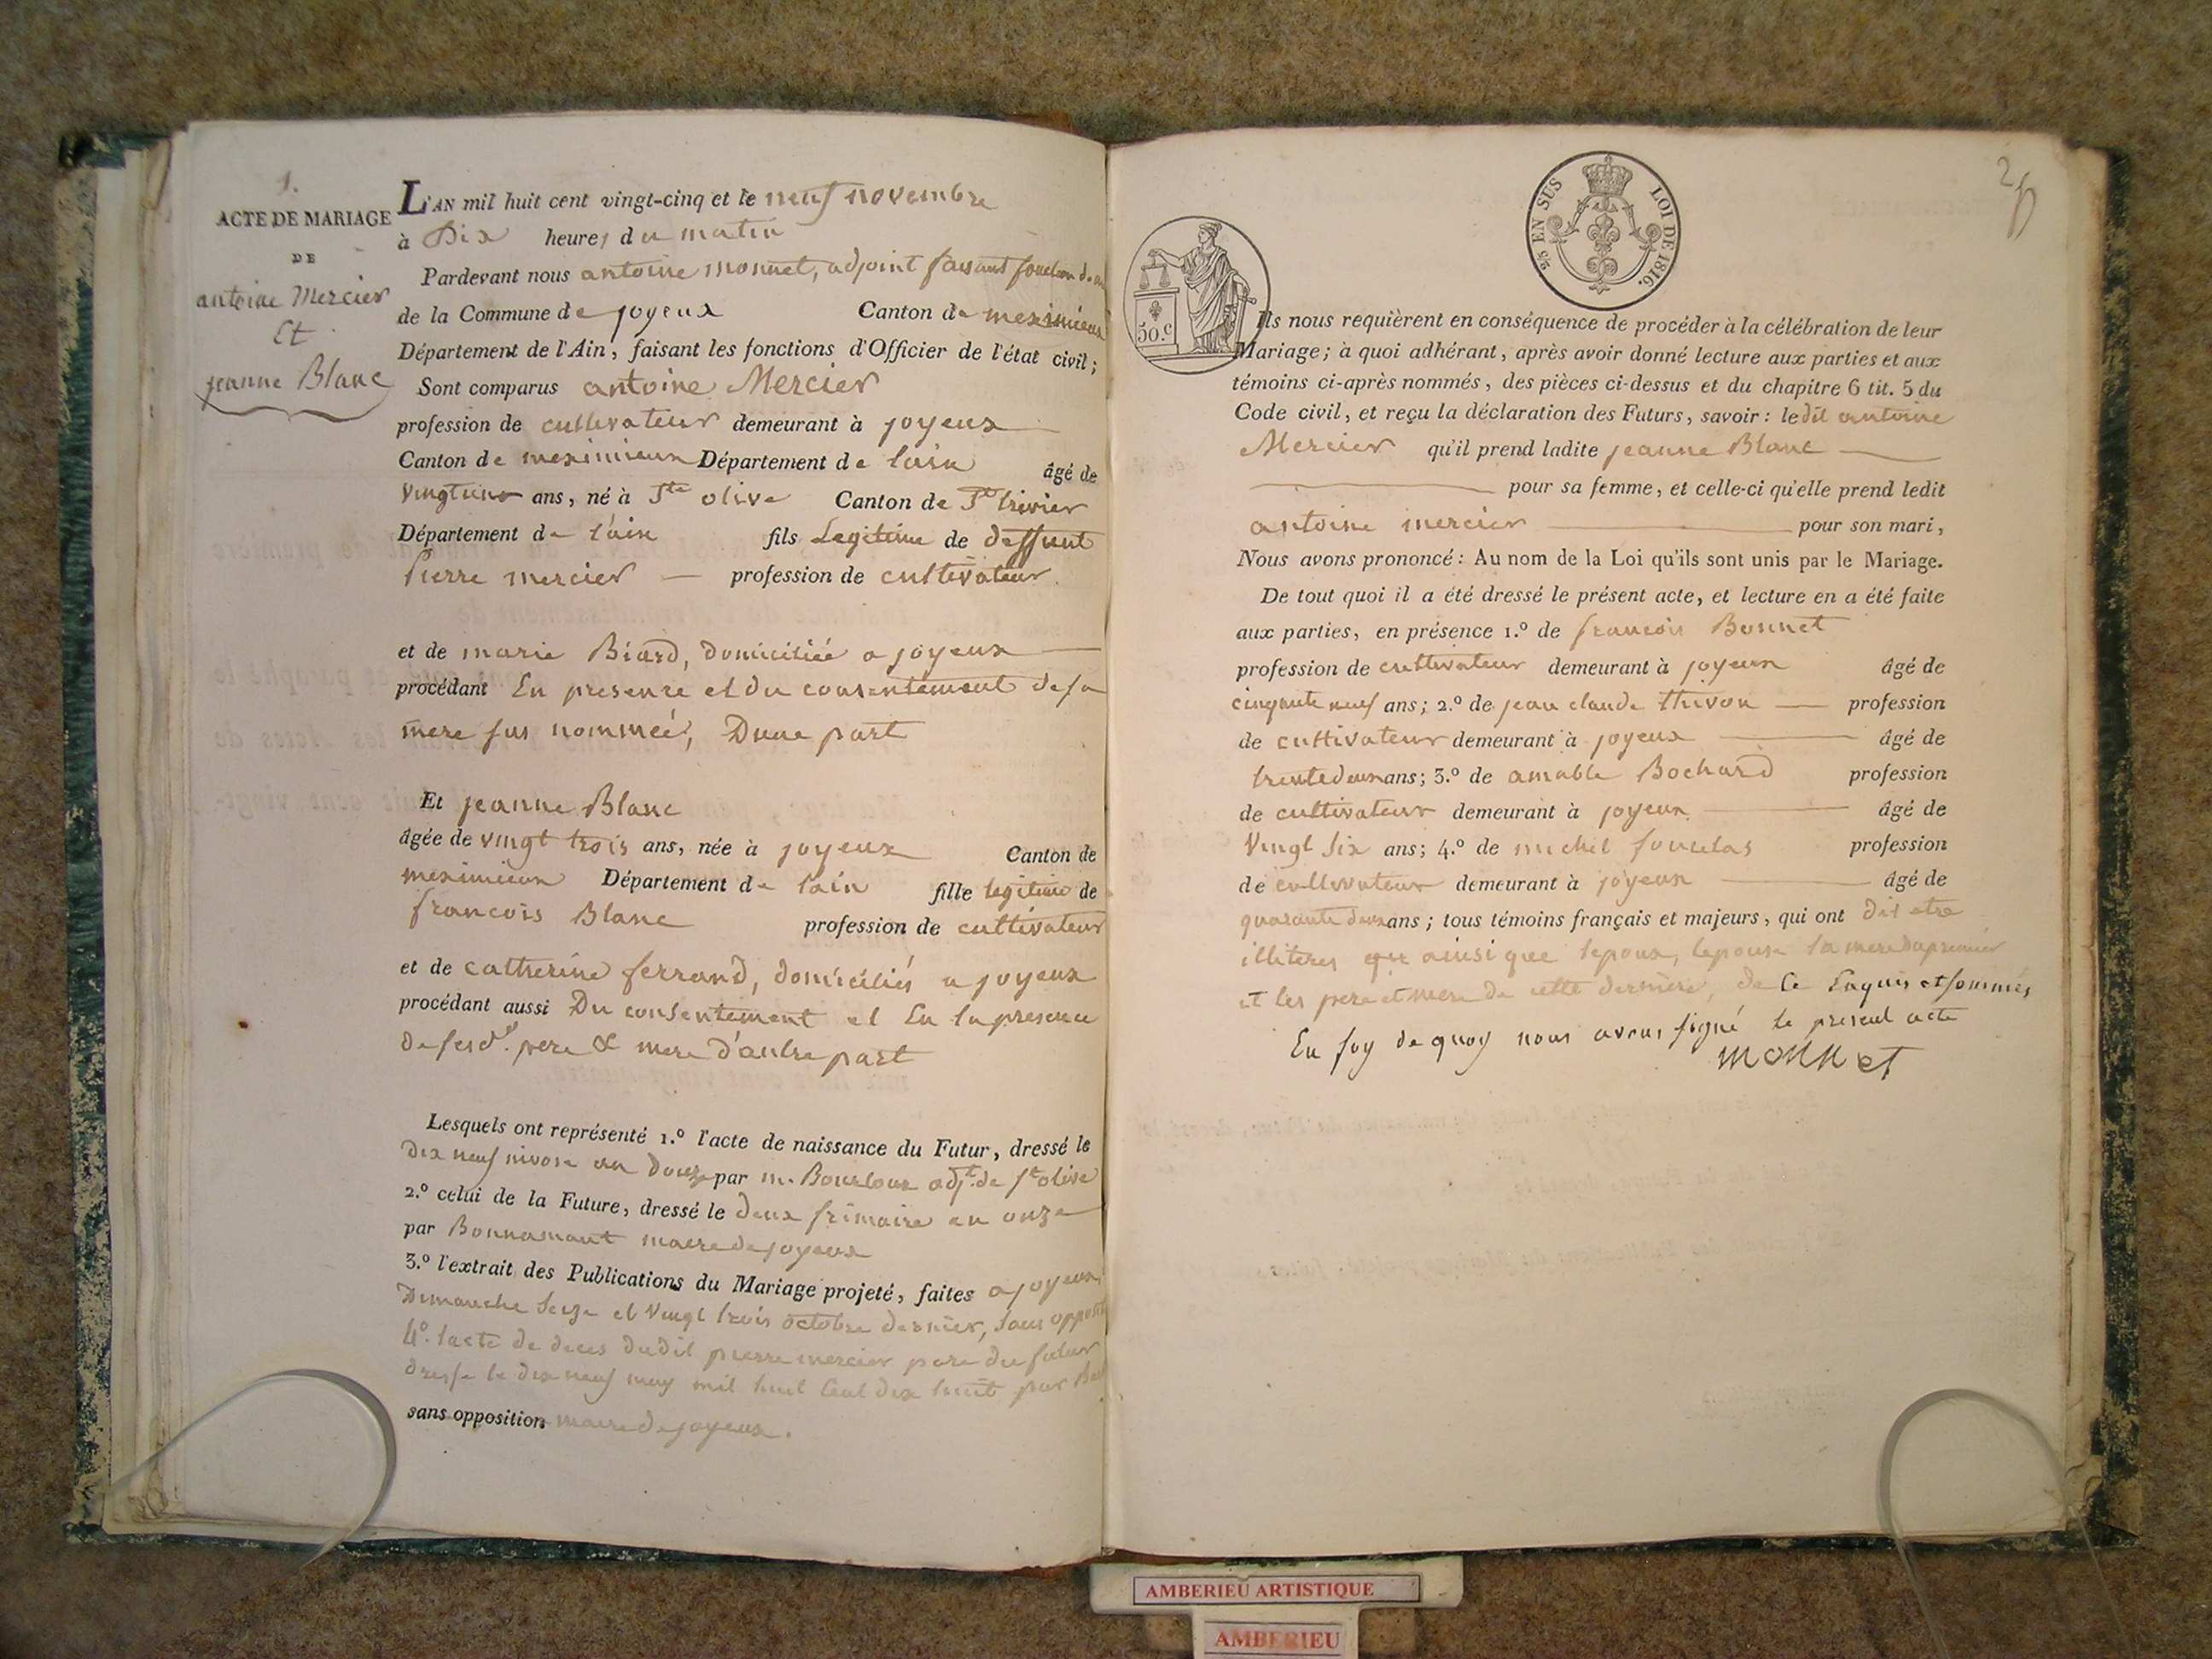 1.
ACTE DE MARIAGE
DE
antoine Mercier
Et
jeanne Blanc
L'AN mil huit cent vingt-cinq et le neuf novembre
à Dix heures du matin
Pardevant nous antoine monnet, adjoint faisant fonction de
de la Commune de joyeux Canton de meximieux
Département de l'Ain, faisant les fonctions d'Officier de l'état civil;
Sont comparus antoine Mercier
profession de cultivateur demeurant à joyeux
Canton de meximieux Département de lain âgé de
ans, né à Ste olive Canton de St trivier
Département de l'ain fils Legitime de deffunt
Pierre mercier profession de cultivateur
et de marie Biard, domiciliée a joyeux
procédant En presence et du consentement de sa
mere sus nommeé, Dune part
Et jeanne Blanc
âgée de vingt trois ans, née à joyeux Canton de
meximieux Département de lain fille legitime de
francois Blanc profession de cultivateur
et de catherine ferrand, domiciliés a joyeux
procédant aussi Du consentement et En la presence
de sesd. pere & mere d'autre part
Lesquels ont représenté 1.º l'acte de naissance du Futur, dressé le
dix neuf nivose an douze par m. adjt. de Ste olive
2.º celui de la Future, dressé le deux frimaire an onze
par Bonnamant maire de joyeux
3.º l'extrait des Publications du Mariage projeté, faites a joyeux
Dimanche seize et vingt trois octobre dernier, sans
4º. lacte de deces dudit pierre mercier pere du futur
dresse le dix neuf may mil huit cent dix huit par
sans opposition maire de joyeux.
2
25 EN SUS LOI DE 1816.
50.c
Ils nous requièrent en conséquence de procéder à la célébration de leur
Mariage; à quoi adhérant, après avoir donné lecture aux parties et aux
témoins ci-après nommés, des pièces ci-dessus et du chapitre 6 tit. 5 du
Code civil, et reçu la déclaration des Futurs, savoir: ledit antoine
Mercier qu'il prend ladite jeanne Blanc
pour sa femme, et celle-ci qu'elle prend ledit
antoine mercier pour son mari,
Nous avons prononcé: Au nom de la Loi qu'ils sont unis par le Mariage.
De tout quoi il a été dressé le présent acte, et lecture en a été faite
aux parties, en présence 1.º de francois Bonnet
profession de cultivateur demeurant à joyeux âgé de
cinquante neuf ans; 2.º de jean claude thivon profession
de cultivateur demeurant à joyeux âgé de
trente deux ans; 3.º de amable Bochard profession
de cultivateur demeurant à joyeux âgé de
Vingt Six ans; 4.º de michel profession
de cultivateur demeurant à joyeux âgé de
quarante deux ans; tous témoins français et majeurs, qui ont dit etre
illiteres ainsi que lepoux, lepouse la mere du premier
et les pere et mere de cette derniere, de ce Enquis et sommés
En foy de quoy nous avons signé le present acte
monnet
AMBERIEU ARTISTIQUE
AMBERIEU